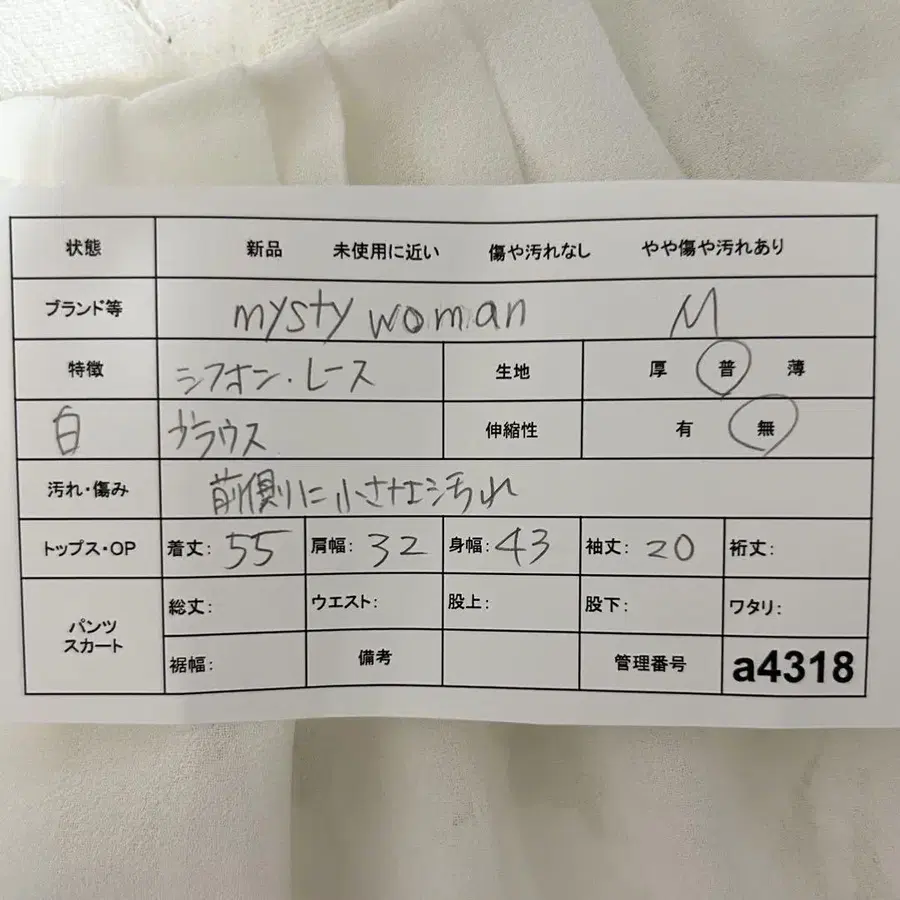 状態 新品 未使用に近い 傷や汚れなし やや傷や汚れあり
ブランド等 mysty woman M
特徴 シフォン・レース 生地 厚 普 薄
白 ブラウス 伸縮性 有 無
汚れ・傷み 前側に小さな汚れ
トップス・OP 着丈: 55 肩幅: 32 身幅: 43 袖丈: 20 裄丈:
パンツ
スカート
総丈: ウエスト: 股上: 股下: ワタリ:
裾幅: 備考 管理番号 a4318